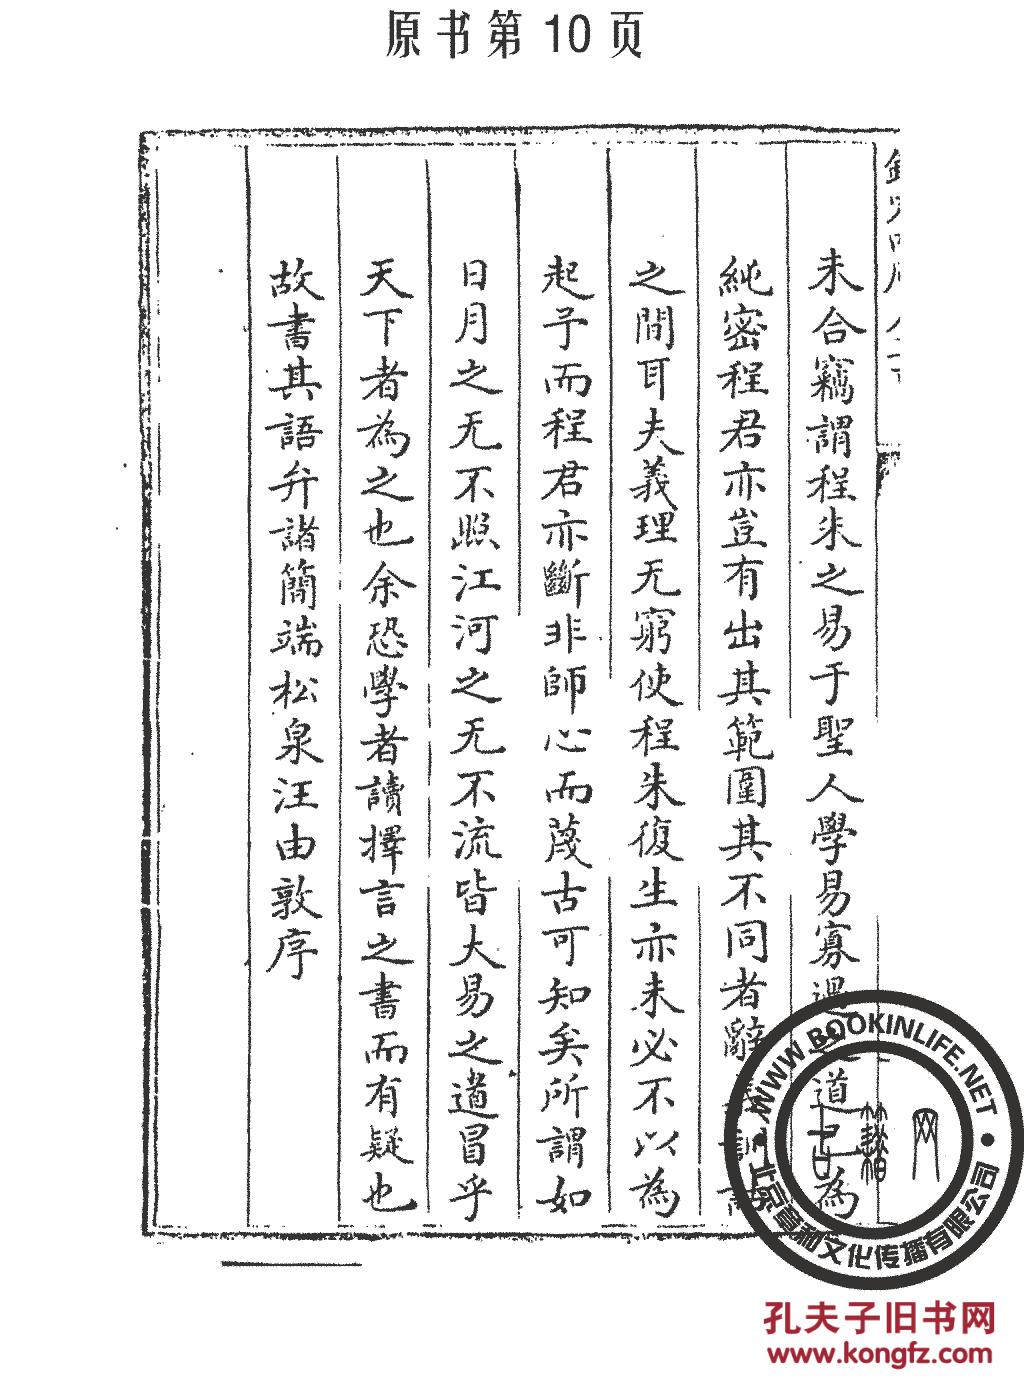 原书第10页
未合竊謂程朱之易于聖人學易寡過之道已為
純密程君亦豈有出其範圍其不同者辭義訓詁
之間耳夫義理无窮使程朱復生亦未必不以為
起予而程君亦斷非師心而蔑古可知矣所謂如
日月之无不照江河之无不流皆大易之道冒乎
天下者為之也余恐學者讀擇言之書而有疑也
故書其語弁諸簡端松泉汪由敦序
WWW.BOOKINLIFE.NET
北京尊和文化传播有限公司
孔夫子旧书网
www.kongfz.com